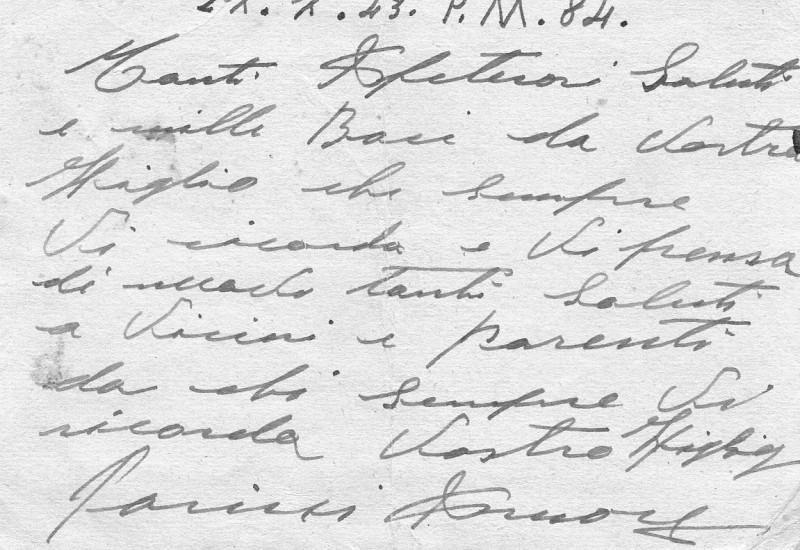 P.M. 84.
Tanti Afetuosi Saluti
e mille Baci da Vostro
Figlio che sempre
Vi ricorda e Vi pensa
di nuovo tanti Saluti
a Vicini e parenti
da chi sempre Vi
ricorda Vostro Figlio